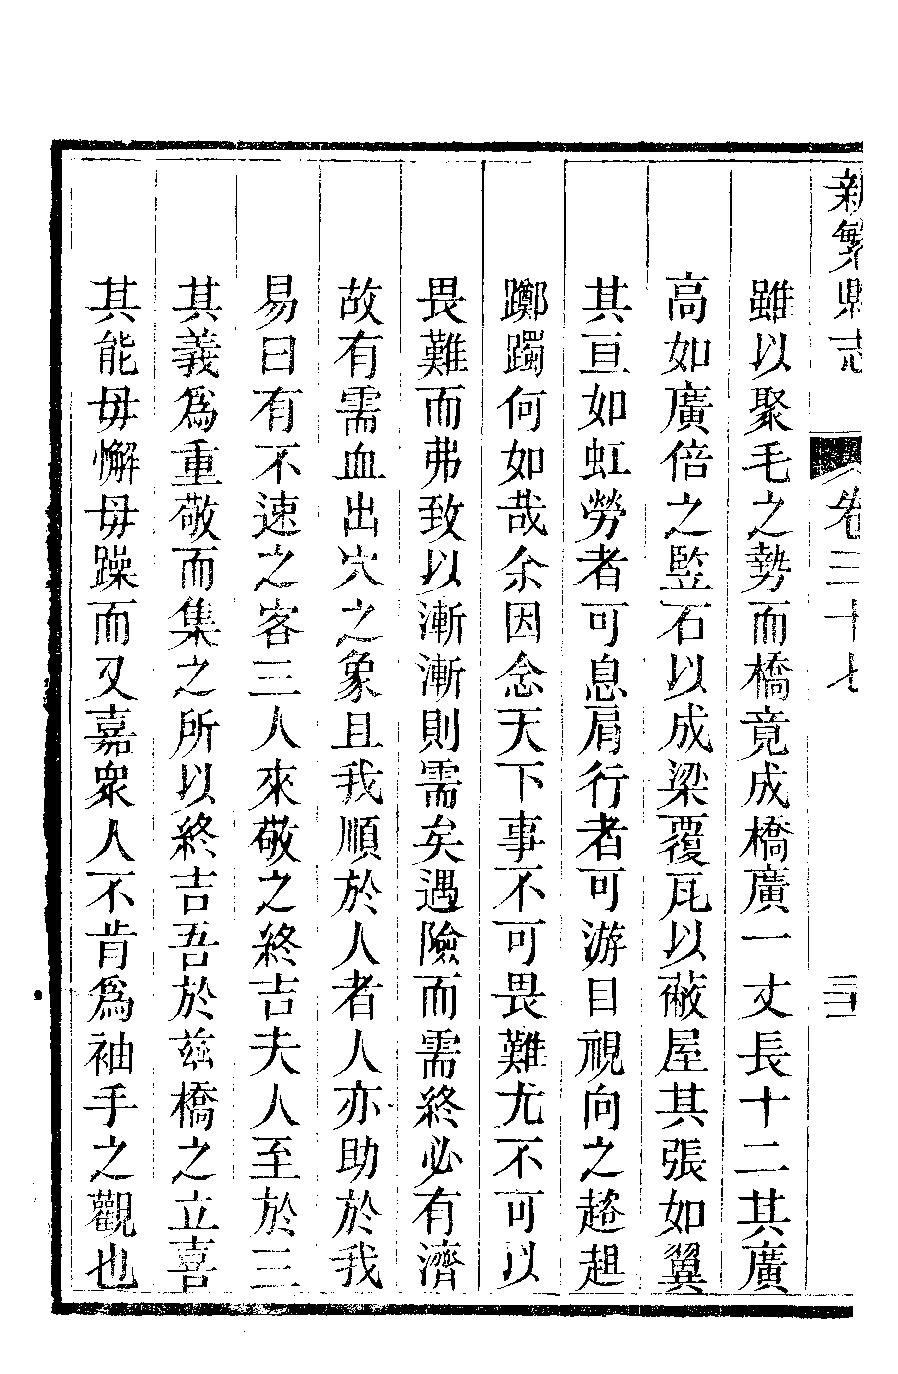 新繁縣志 卷三十七 三二
雖以聚毛之勢而橋竟成橋廣一丈長十二其廣
高如廣倍之監石以成梁覆瓦以蔽屋其張如翼
其亘如虹勞者可息肩行者可游目視向之趦趄
躑躅何如哉余因念天下事不可畏難尤不可以
畏難而弗致以漸漸則需矣遇險而需終必有濟
故有需血出穴之象且我順於人者人亦助於我
易曰有不速之客三人來敬之終吉夫人至於三
其義爲重敬而集之所以終吉吾於兹橋之立喜
其能毋懈毋躁而又嘉衆人不肯爲袖手之觀也